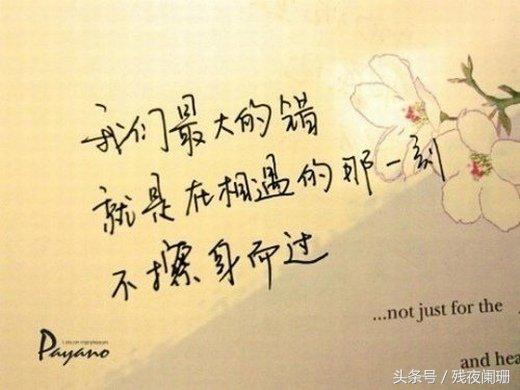 我们最大的错
就是在相遇的那一刻
不擦身而过
...not just for the
and hea
Payano
头条号／残夜阑珊